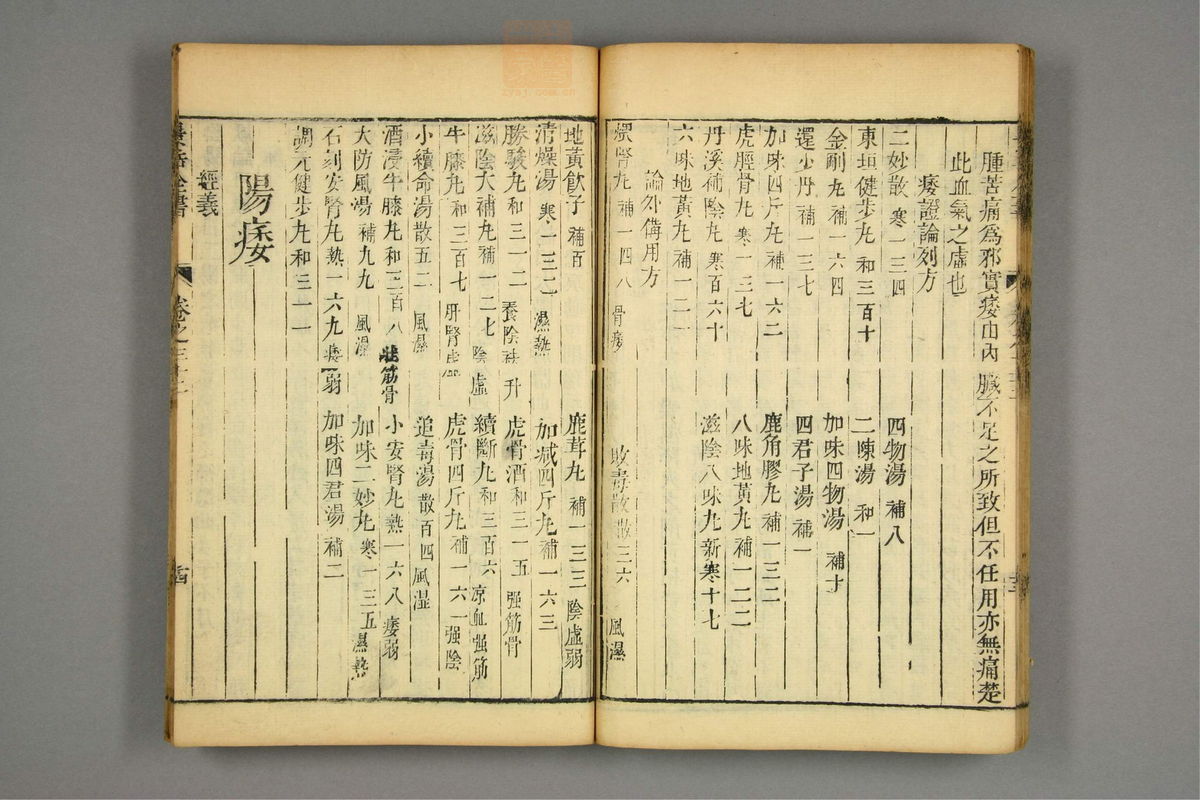 腫苦痛爲邪實痿由內臟不足之所致但不任用亦無痛楚
此血氣之虛也
痿證論列方
二妙散 寒一三四 四物湯 補八
東垣健步丸 和三百十 二陳湯 和一
金剛丸 補一六四 加味四物湯 補十
還少丹 補一三七 四君子湯 補一
加味四斤丸 補一六二 鹿角膠丸 補一三二
虎脛骨丸 寒一三七 八味地黃丸 補一二二
丹溪補陰丸 寒百六十 滋陰八味丸 新寒十七
六味地黃丸 補一二一
論外備用方
煨腎丸 補一四八 骨痿 敗毒散 散三六 風濕
地黃飲子 補百 鹿茸丸 補一三三 陰虛弱
清燥湯 寒一三二 濕熱 加減四斤丸 補一六三
勝駿丸 和三一二 養陰 升 虎骨酒 和三一五 強筋骨
滋陰大補丸 補一二七 陰虛 續斷丸 和三百六 凉血强筋
牛膝丸 和三百七 肝腎虛 虎骨四斤丸 補一六一 强陰
小續命湯 散五二 風濕 追毒湯 散百四 風湿
酒浸牛膝丸 和三百八 壯筋骨 小安腎丸 熱一六八 痿弱
大防風湯 補九九 風濕 加味二妙丸 寒一三五 濕熱
石刻安腎丸 熱一六九 痿弱 加味四君湯 補二
調元健步丸 和三一一
陽痿
經義
景岳全書 卷之三十二